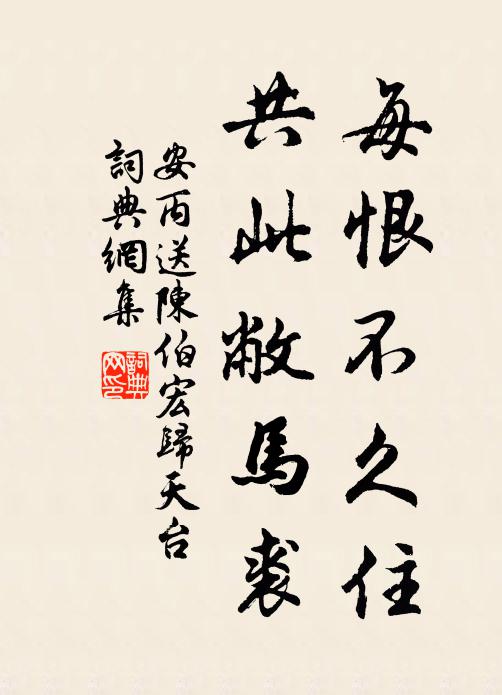 每恨不久住
共此敝馬裘
安丙送陳伯宏歸天台
詞典網集
詞典
网印